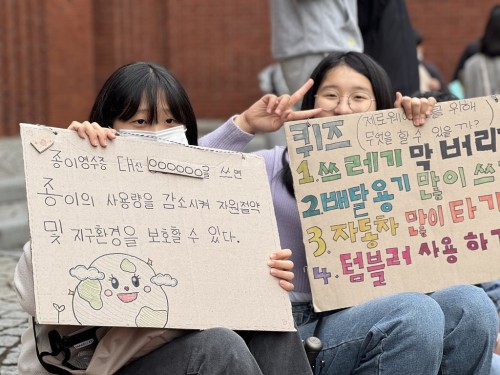 종이영수증 대신 OOOOOO를 쓰면
종이의 사용량을 감소시켜 자원절약
및 지구환경을 보호할 수 있다.
퀴즈 (제로웨이스트를 위해
무엇을 할 수 있을까?)
1. 쓰레기 막 버리
2. 배달용기 많이 쓰
3. 자동차 많이 타기
4. 텀블러 사용 하기